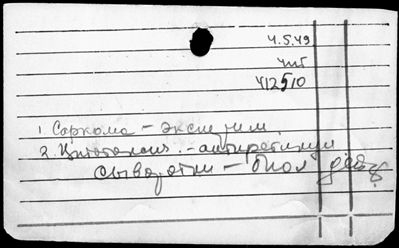 4.5.49
412510
1. Саркома – эксперим.
2. Цитотоксич. - антиретикул
сыворотки – биол